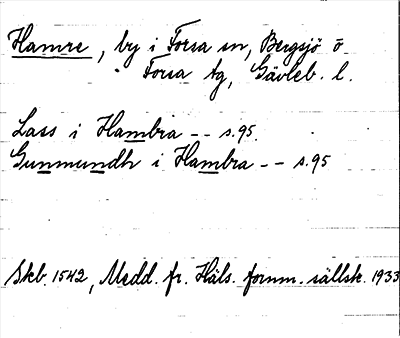 Hamre, by i Forsa sn, Bergsjö o
Forsa tg, Gävleb. l.
Lass i Hambra -- s.95
Gunmundh i Hambra -- s.95
Skb. 1542, Medd. fr. Häls. fornm. sällsk. 1933